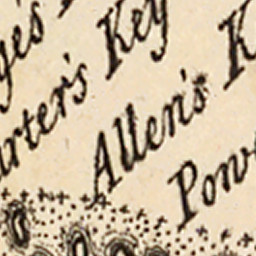 ge's
arter's Key
Allen's K
Pow